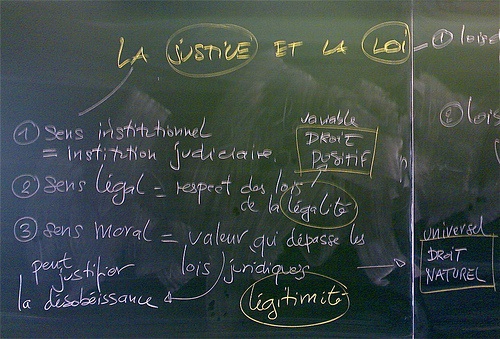 LA JUSTICE ET LA LOI
① lois
② lois
① Sens institutionnel
= Institution judiciaire.
variable
DROIT
POSITIF
② Sens légal = respect des lois
de la légalité
③ Sens moral = valeur qui dépasse les
lois juridiques
légitimité
peut
justifier
la désobéissance
universel
DROIT
NATUREL